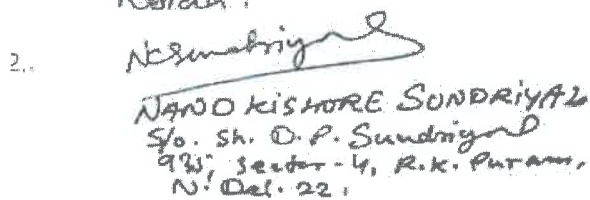 2..
NKSundriyal
NAND KISHORE SUNDRIYAL
S/o. Sh. D.P. Sundriyal
935, Sector-4, R.K. Puram,
N. Del. 22.